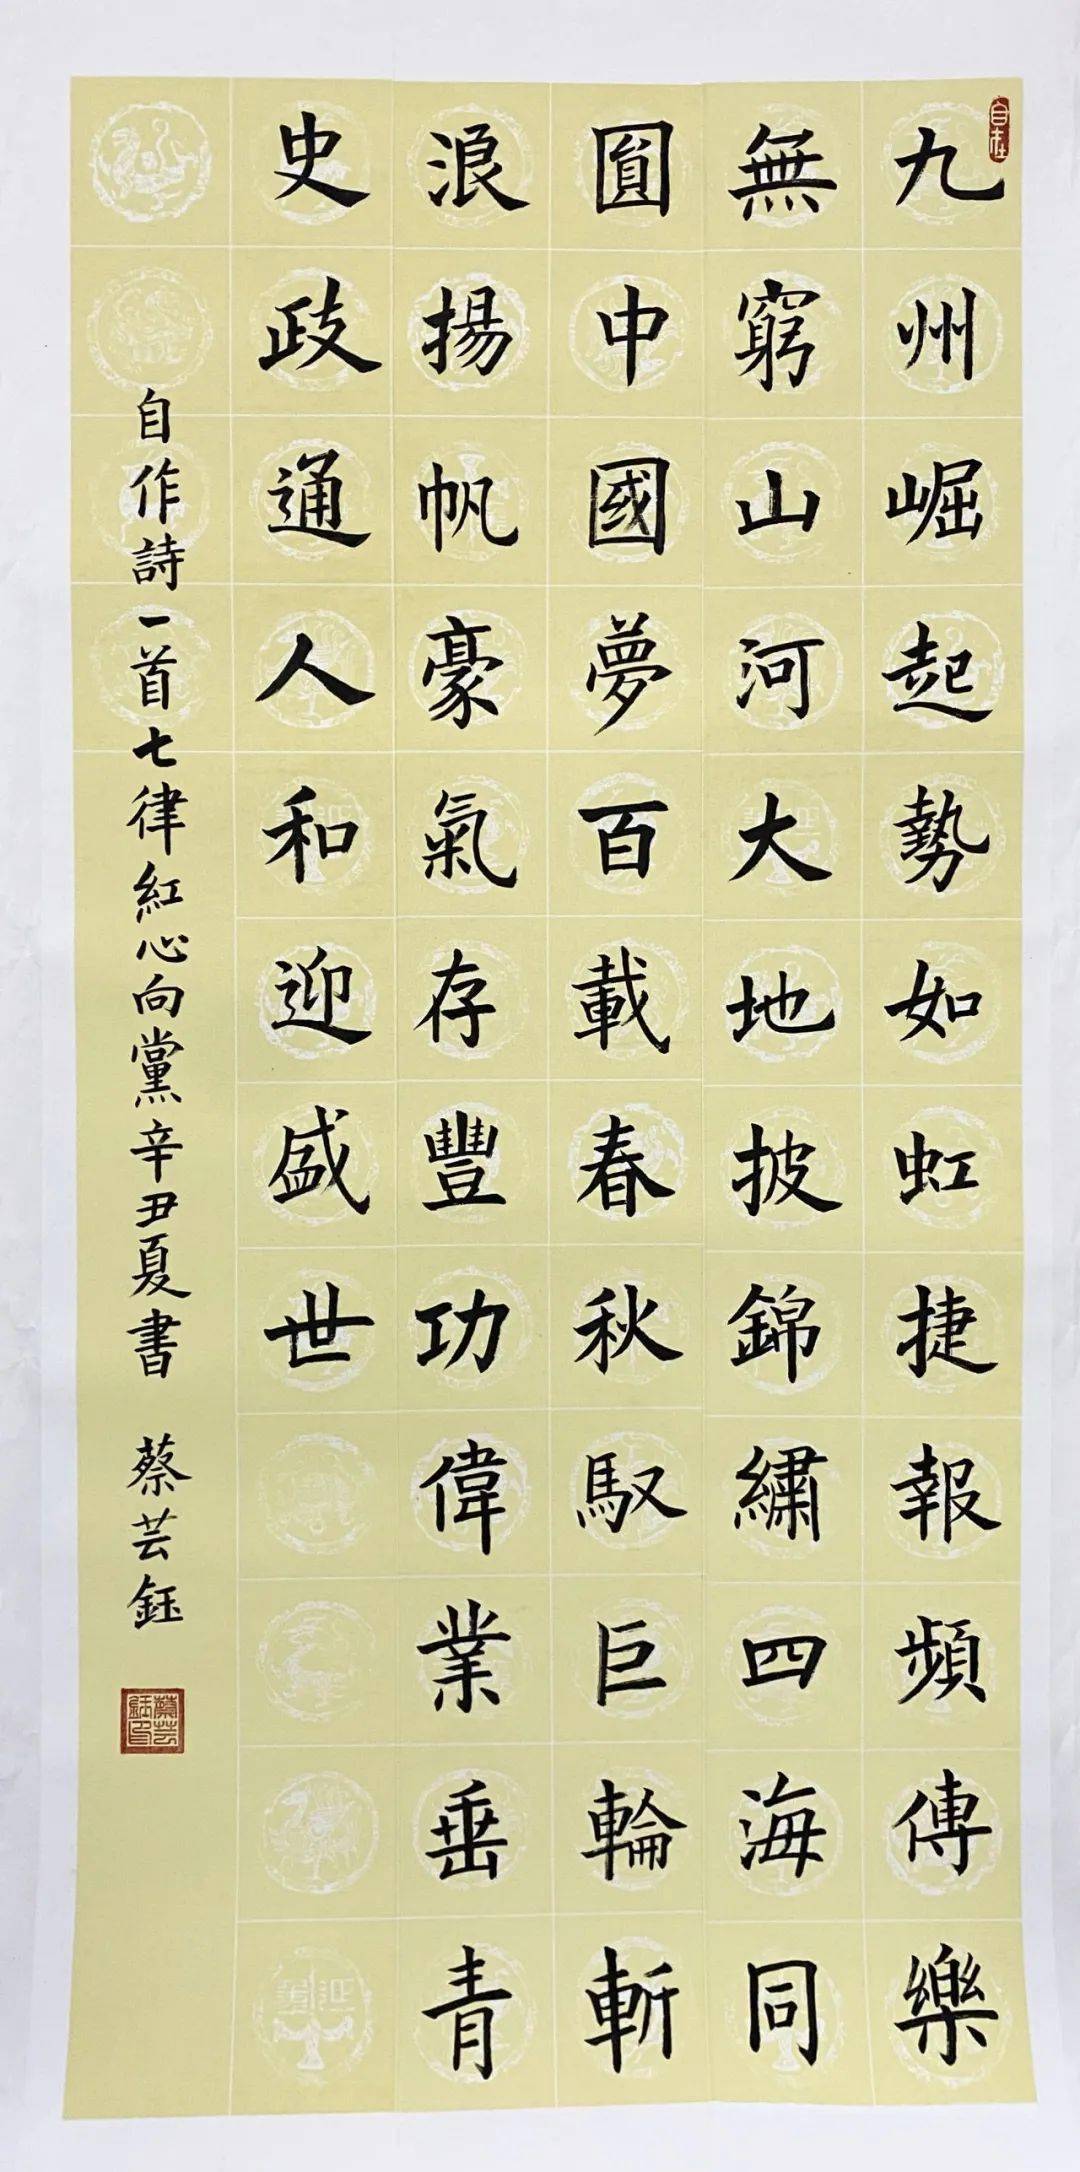 九州崛起勢如虹捷報頻傳樂
無窮山河大地披錦繡四海同
圓中國夢百載春秋馭巨輪斬
浪揚帆豪氣存豐功偉業垂青
史政通人和迎盛世
自作詩一首七律紅心向黨辛丑夏書 蔡芸鈺
自在
蔡芸鈺印